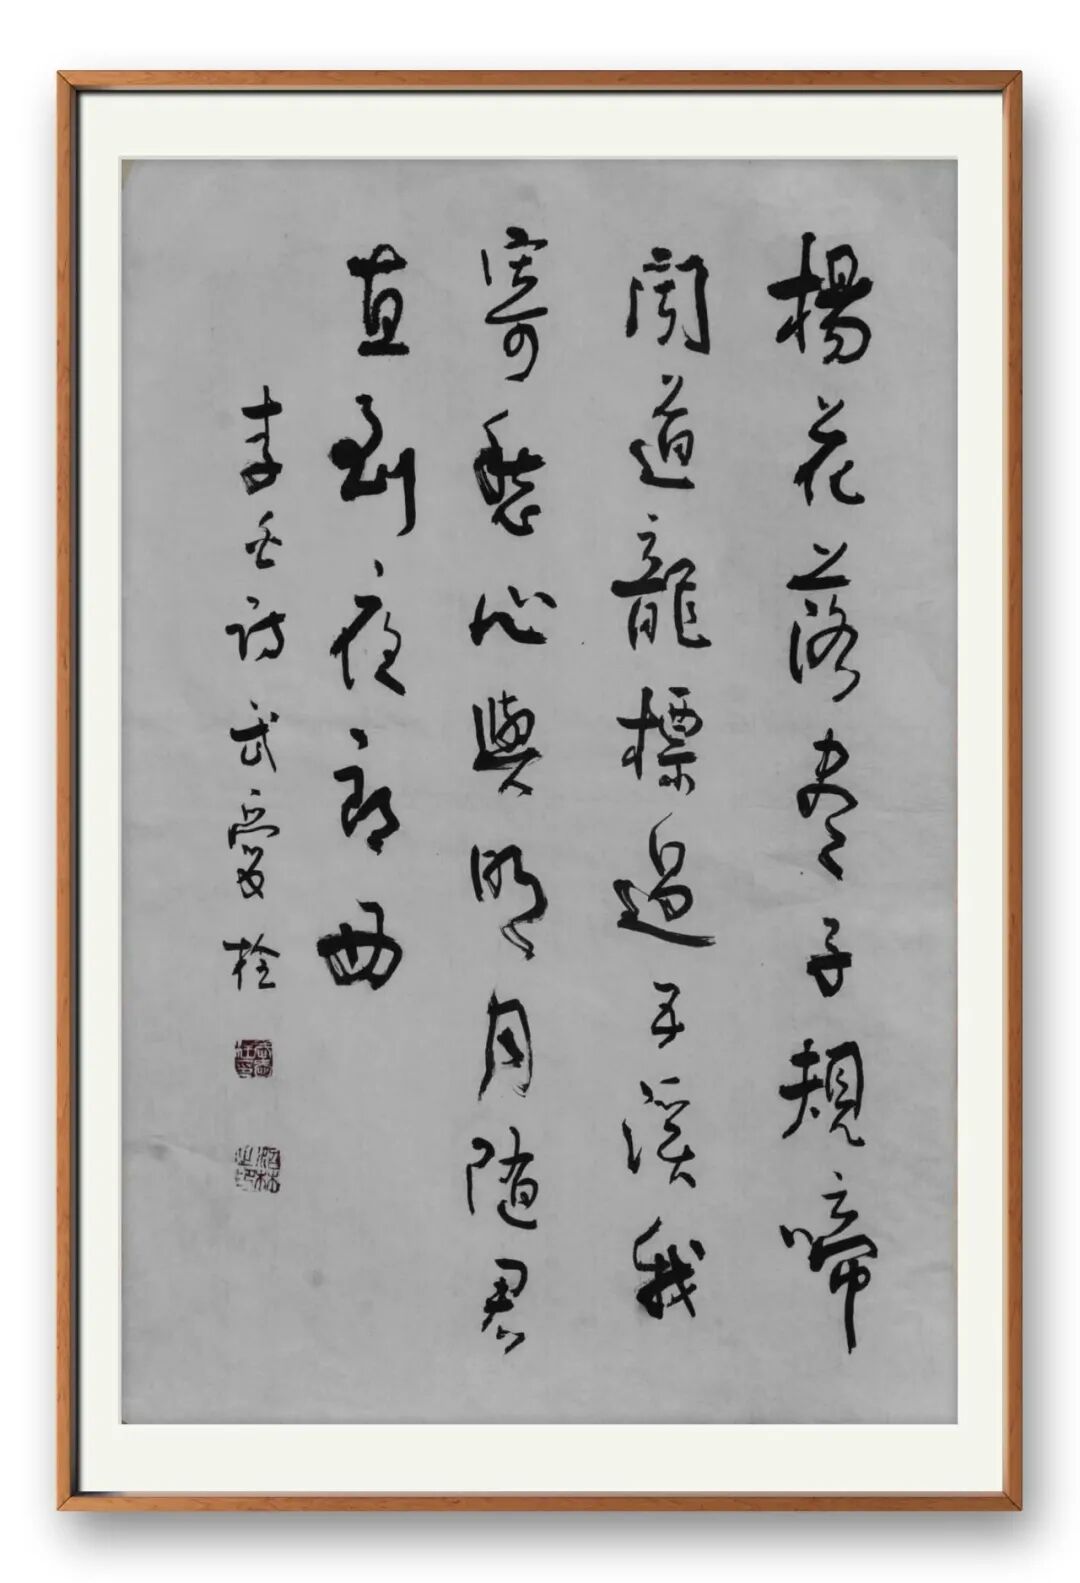 楊花落尽子規啼
聞道龍標過五溪我
寄愁心與明月随君
直到夜郎西
李白诗武愛栓